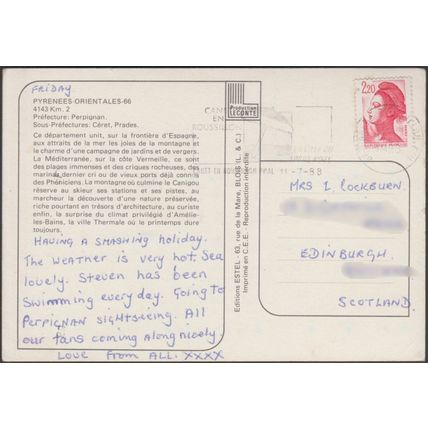 FRIDAY.
PYRENEES-ORIENTALES-66
4143 Km. 2
Préfecture: Perpignan.
Sous-Préfectures: Céret, Prades.
Ce département uni, sur la frontière d'Espagne,
aux attraits de la mer les joies de la montagne et
le charme d'une campagne de jardins et de vergers.
La Méditerranée, sur la côte Vermeille, ce sont
des plages immenses et des criques rocheuses, des
marinas dernier cri ou de vieux ports déjà connus
des Phéniciens. La montagne où culmine le Canigou
réserve au skieur ses stations et ses pistes, au
marcheur la découverte d'une nature préservée,
riche pourtant en trésors d'architecture, au curiste
enfin, la surprise du climat privilégié d'Amélie-
les-Bains, la ville Thermale où le printemps dure
toujours.
HAVING A SMASHING holiday.
The weather is very hot. Sea
lovely. Steven has been
Swimming every day. Going to
Perpignan sightseeing. All
our fans coming along nicely.
Love from ALL. XXXX
Production
LECONTE
Editions ESTEL - 63, rue de la Mare, BLOIS (L. & C.)
Imprimé en C.E.E. - Reproduction interdite
CAN
EN
ROUSSILLON
11-7-88
2,20
MRS I LOCKBURN.
EDINBURGH.
SCOTLAND.